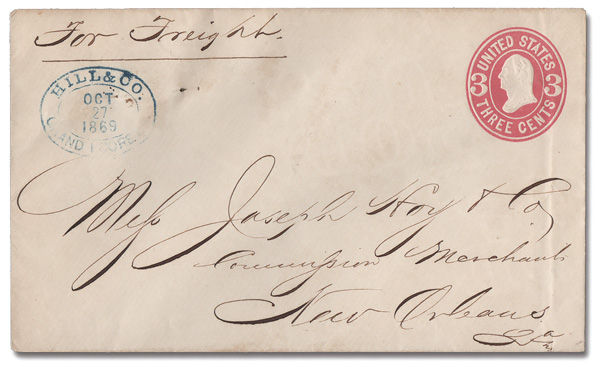 For Freight.
HILL & CO.
OCT
27
1869
GRAND ECORE
UNITED STATES
3 3
THREE CENTS
Mess Joseph Hoy & Co
Commission Merchants
New Orleans
La